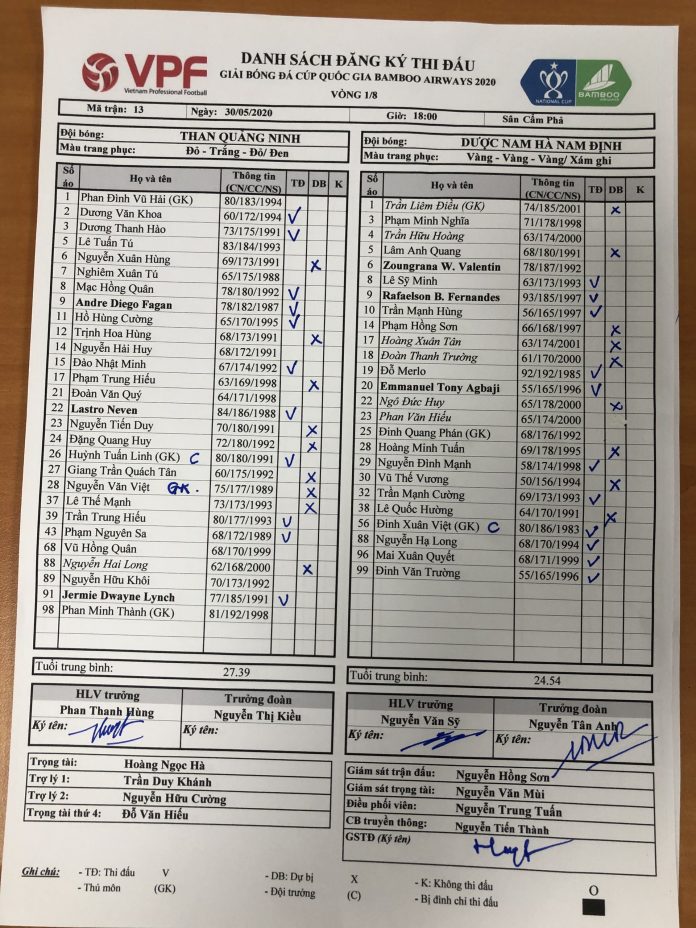 VPF
Vietnam Professional Football
DANH SÁCH ĐĂNG KÝ THI ĐẤU
GIẢI BÓNG ĐÁ CÚP QUỐC GIA BAMBOO AIRWAYS 2020
VÒNG 1/8
NATIONAL CUP
BAMBOO
AIRWAYS
Mã trận: 13 Ngày: 30/05/2020 Giờ: 18:00 Sân Cẩm Phả
Đội bóng: THAN QUẢNG NINH
Màu trang phục: Đỏ - Trắng - Đỏ/ Đen
Số áo Họ và tên Thông tin (CN/CC/NS) TĐ DB K
1 Phan Đình Vũ Hải (GK) 80/183/1994
2 Dương Văn Khoa 60/172/1994 V
3 Dương Thanh Hào 73/175/1991 V
5 Lê Tuấn Tú 83/184/1993
6 Nguyễn Xuân Hùng 69/173/1991 X
7 Nghiêm Xuân Tú 65/175/1988
8 Mạc Hồng Quân 78/180/1992 V
9 Andre Diego Fagan 78/182/1987 V
11 Hồ Hùng Cường 65/170/1995 V
12 Trịnh Hoa Hùng 68/173/1991 X
14 Nguyễn Hải Huy 68/172/1991
15 Đào Nhật Minh 67/174/1992 V
17 Phạm Trung Hiếu 63/169/1998 X
21 Đoàn Văn Quý 64/171/1998
22 Lastro Neven 84/186/1988 V
23 Nguyễn Tiến Duy 70/180/1991 X
24 Đặng Quang Huy 72/180/1992 X
26 Huỳnh Tuấn Linh (GK) C 80/180/1991 V
27 Giang Trần Quách Tân 60/175/1992 X
28 Nguyễn Văn Việt GK. 75/177/1989 X
37 Lê Thế Mạnh 73/173/1993 X
39 Trần Trung Hiếu 80/177/1993 V
43 Phạm Nguyên Sa 68/172/1989 V
68 Vũ Hồng Quân 68/170/1999
88 Nguyễn Hai Long 62/168/2000 X
89 Nguyễn Hữu Khôi 70/173/1992
91 Jermie Dwayne Lynch 77/185/1991 V
98 Phan Minh Thành (GK) 81/192/1998
Tuổi trung bình: 27.39
HLV trưởng Trưởng đoàn
Phan Thanh Hùng Nguyễn Thị Kiều
Ký tên: Ký tên:
Trọng tài: Hoàng Ngọc Hà
Trợ lý 1: Trần Duy Khánh
Trợ lý 2: Nguyễn Hữu Cường
Trọng tài thứ 4: Đỗ Văn Hiếu
Đội bóng: DƯỢC NAM HÀ NAM ĐỊNH
Màu trang phục: Vàng - Vàng - Vàng/ Xám ghi
Số áo Họ và tên Thông tin (CN/CC/NS) TĐ DB K
1 Trần Liêm Điều (GK) 74/185/2001 X
3 Phạm Minh Nghĩa 71/178/1998
4 Trần Hữu Hoàng 63/174/2000
5 Lâm Anh Quang 68/180/1991 X
6 Zoungrana W. Valentin 78/187/1992
8 Lê Sỹ Minh 63/173/1993 V
9 Rafaelson B. Fernandes 93/185/1997 V
10 Trần Mạnh Hùng 56/165/1997 V
14 Phạm Hồng Sơn 66/168/1997 X
17 Hoàng Xuân Tân 63/174/2001 X
18 Đoàn Thanh Trường 61/170/2000 X
19 Đỗ Merlo 92/192/1985 V
20 Emmanuel Tony Agbaji 55/165/1996 V
22 Ngô Đức Huy 65/178/2000 X
23 Phan Văn Hiếu 65/174/2000
25 Đinh Quang Phán (GK) 68/176/1992
28 Hoàng Minh Tuấn 69/178/1995 X
29 Nguyễn Đình Mạnh 58/174/1998 V
30 Vũ Thế Vương 50/156/1994 X
32 Trần Mạnh Cường 69/173/1993 V
38 Lê Quốc Hường 64/170/1991 X
56 Đinh Xuân Việt (GK) C 80/186/1983 V
88 Nguyễn Hạ Long 68/170/1994 V
96 Mai Xuân Quyết 68/171/1999 V
99 Đinh Văn Trường 55/165/1996 V
Tuổi trung bình: 24.54
HLV trưởng Trưởng đoàn
Nguyễn Văn Sỹ Nguyễn Tân Anh
Ký tên: Ký tên:
Giám sát trận đấu: Nguyễn Hồng Sơn
Giám sát trọng tài: Nguyễn Văn Mùi
Điều phối viên: Nguyễn Trung Tuấn
CB truyền thông: Nguyễn Tiến Thành
GSTĐ (Ký tên)
Ghi chú: - TĐ: Thi đấu V - DB: Dự bị X - K: Không thi đấu O
- Thủ môn (GK) - Đội trưởng (C) - Bị đình chỉ thi đấu